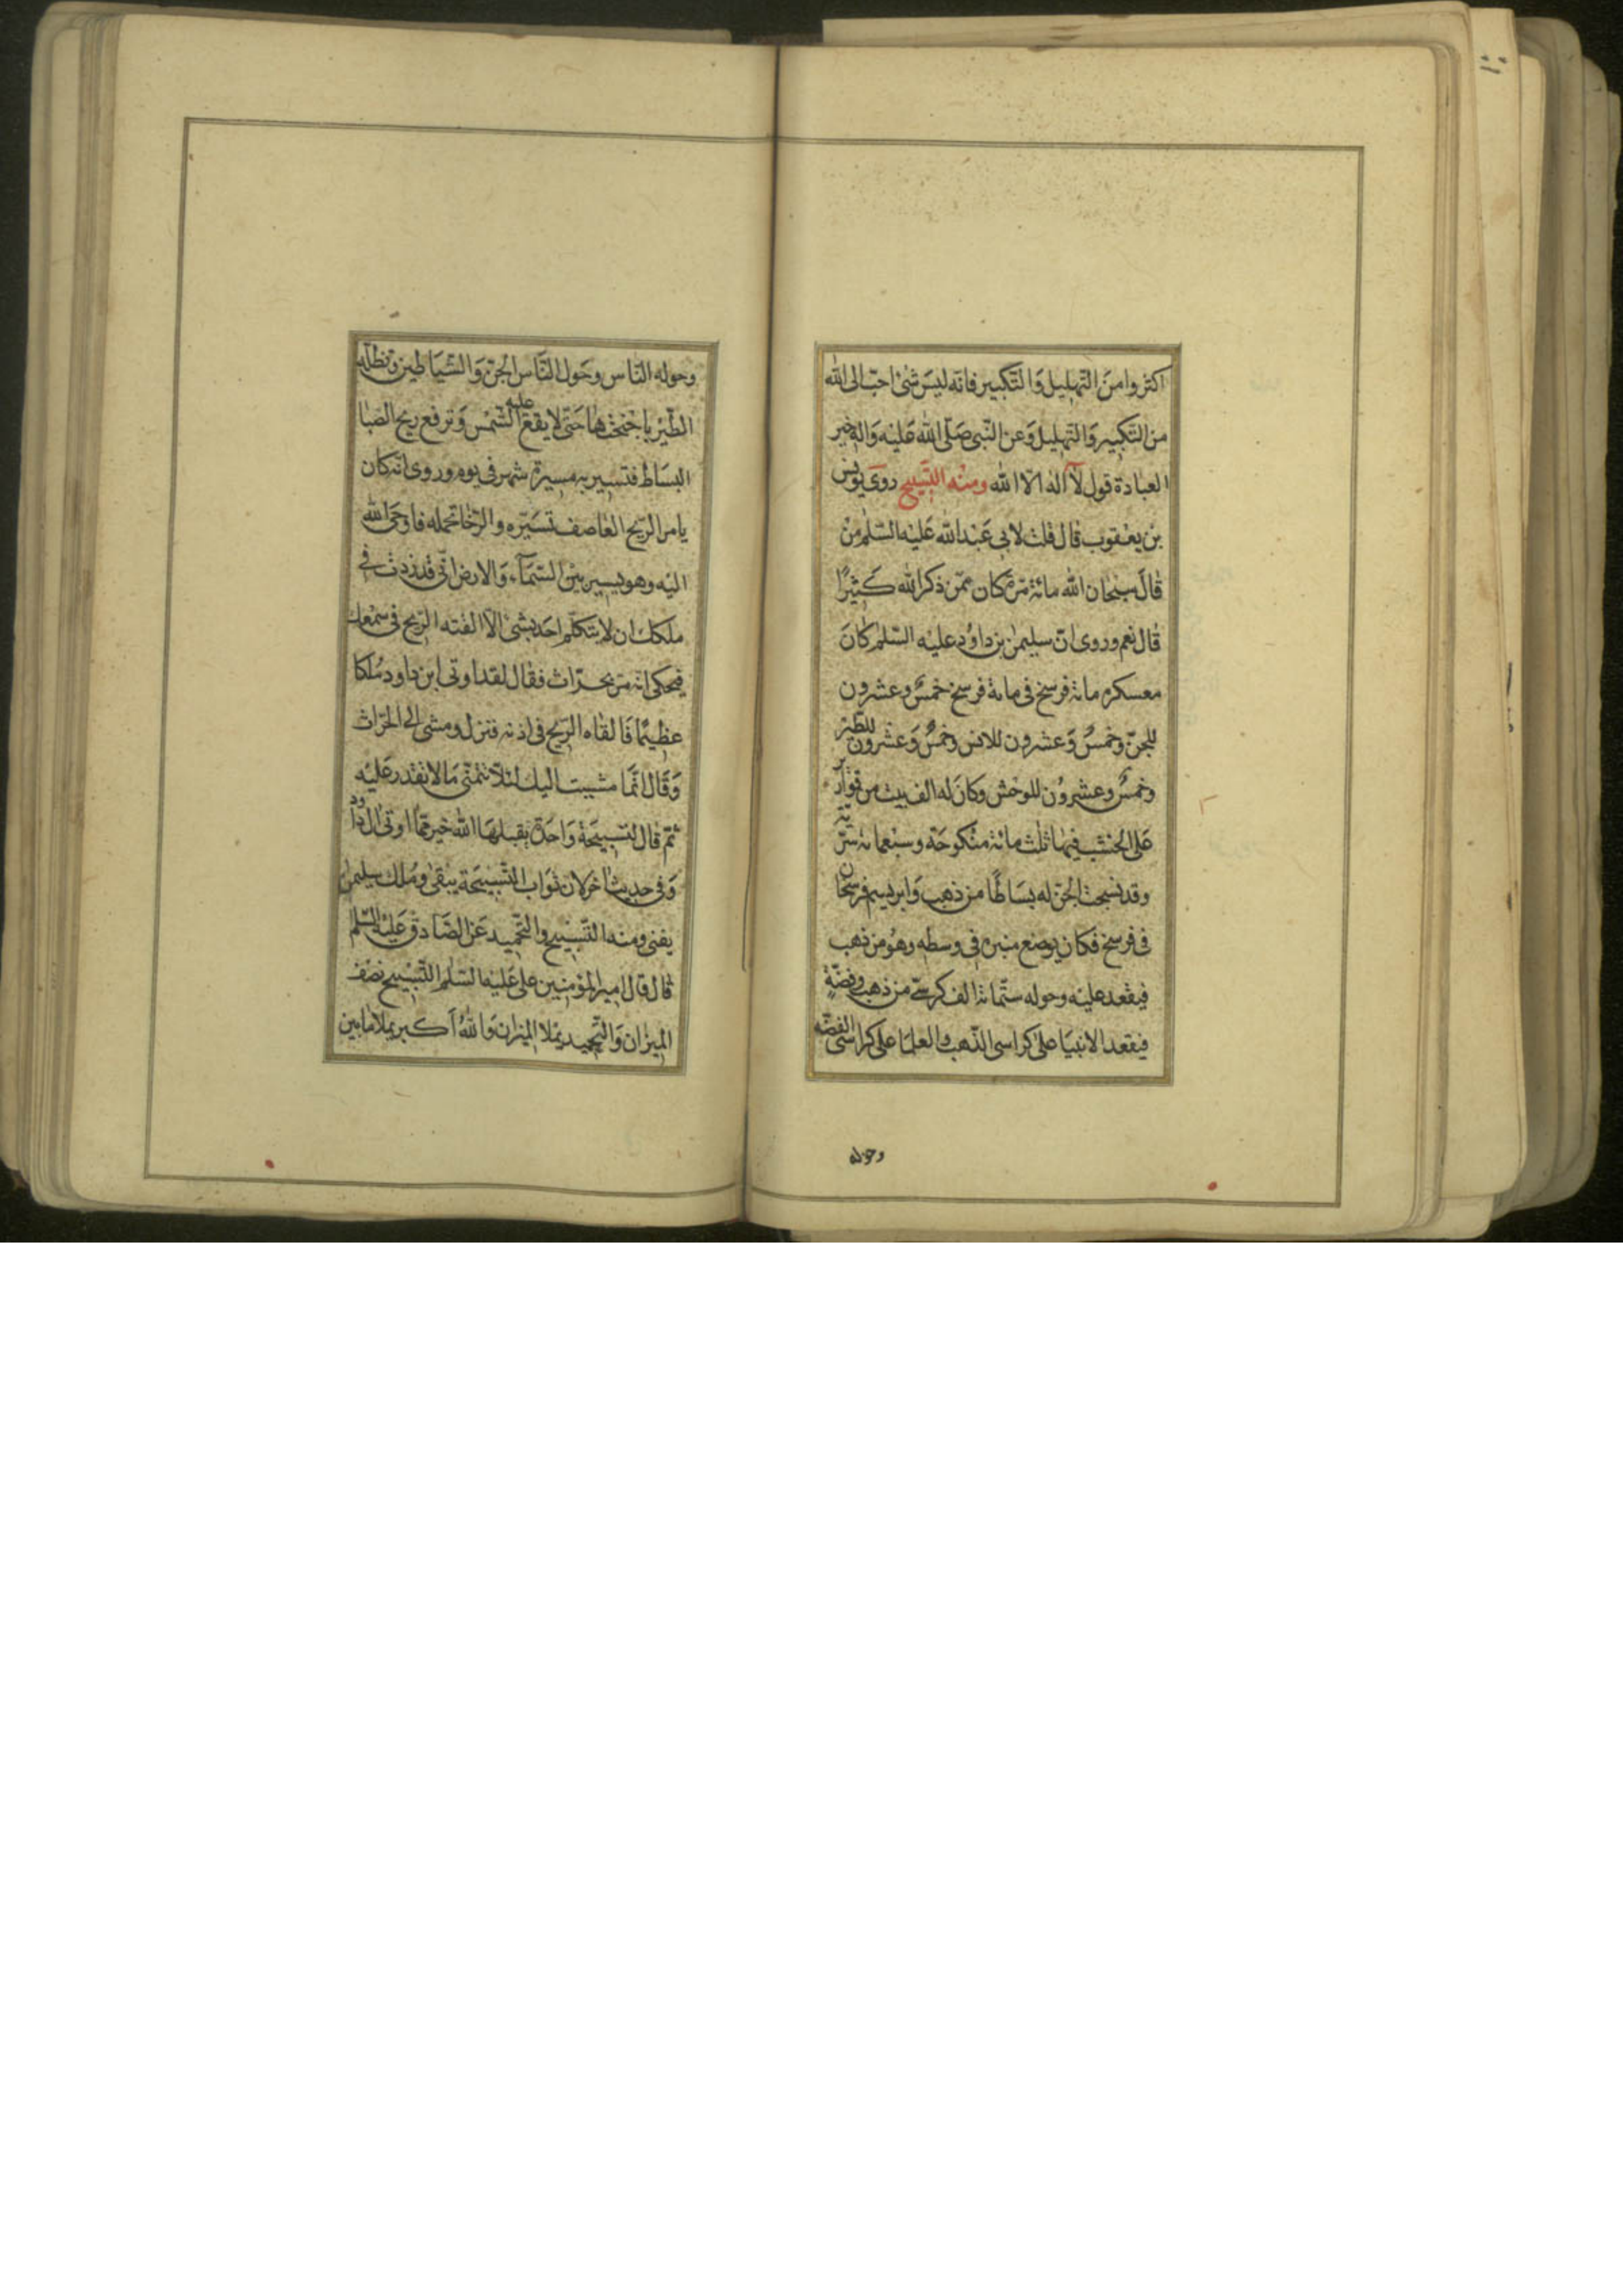 اكثروا من التهليل والتكبير فانه ليس شئ احب الى الله
من التكبير والتهليل وعن النبى صلى الله عليه واله خير
العبادة قول لا اله الا الله ومنه التسبيح روى يونس
بن يعقوب قال قلت لابى عبد الله عليه السلم من
قال سبحان الله مائة مرة كان ممن ذكر الله كثيرا
قال نعم وروى ان سليمن بن داود عليه السلم كان
معسكره مائة فرسخ فى مائة فرسخ خمس وعشرون
للجن وخمس وعشرون للانس وخمس وعشرون للطير
وخمس وعشرون للوحش وكان له الف بيت من قوارير
على الخشب فيها ثلث مائة منكوحة وسبعمائة سرية
وقد نسجت الجن له بساطا من ذهب وابريسم فرسخان
فى فرسخ فكان يوضع منبره فى وسطه وهو من ذهب
فيقعد عليه وحوله ستمائة الف كرسى من ذهب وفضة
فيقعد الانبيا على كراسى الذهب والعلما على كراسى الفضه
وحوله
وحوله الناس وحول الناس الجن والشياطين وتظله
الطير باجنحتها حتى لا يقع عليه الشمس وترفع ريح الصبا
البساط فتسير به مسيرة شهر فى يوم وروى انه كان
يامر الريح العاصف تسيره والرخا تحمله فاوحى الله
اليه وهو يسير بين السمآء والارض انى قد زدت فى
ملكك ان لا يتكلم احد بشئ الا القته الريح فى سمعك
فيحكى انه مر بحراث فقال لقد اوتى ابن داود ملكا
عظيما فالقاه الريح فى اذنه فنزل ومشى الى الحراث
وقال انما مشيت اليك لئلا تتمنى ما لا تقدر عليه
ثم قال لتسبيحة واحدة يقبلها الله خير مما اوتى ال داود
وفى حديث اخر لان ثواب التسبيحة يبقى وملك سليمن
يفنى ومنه التسبيح والتحميد عن الصادق عليه السلم
قال قال امير المؤمنين على عليه السلم التسبيح نصف
الميزان والتحميد يملا الميزان والله اكبر يملا ما بين